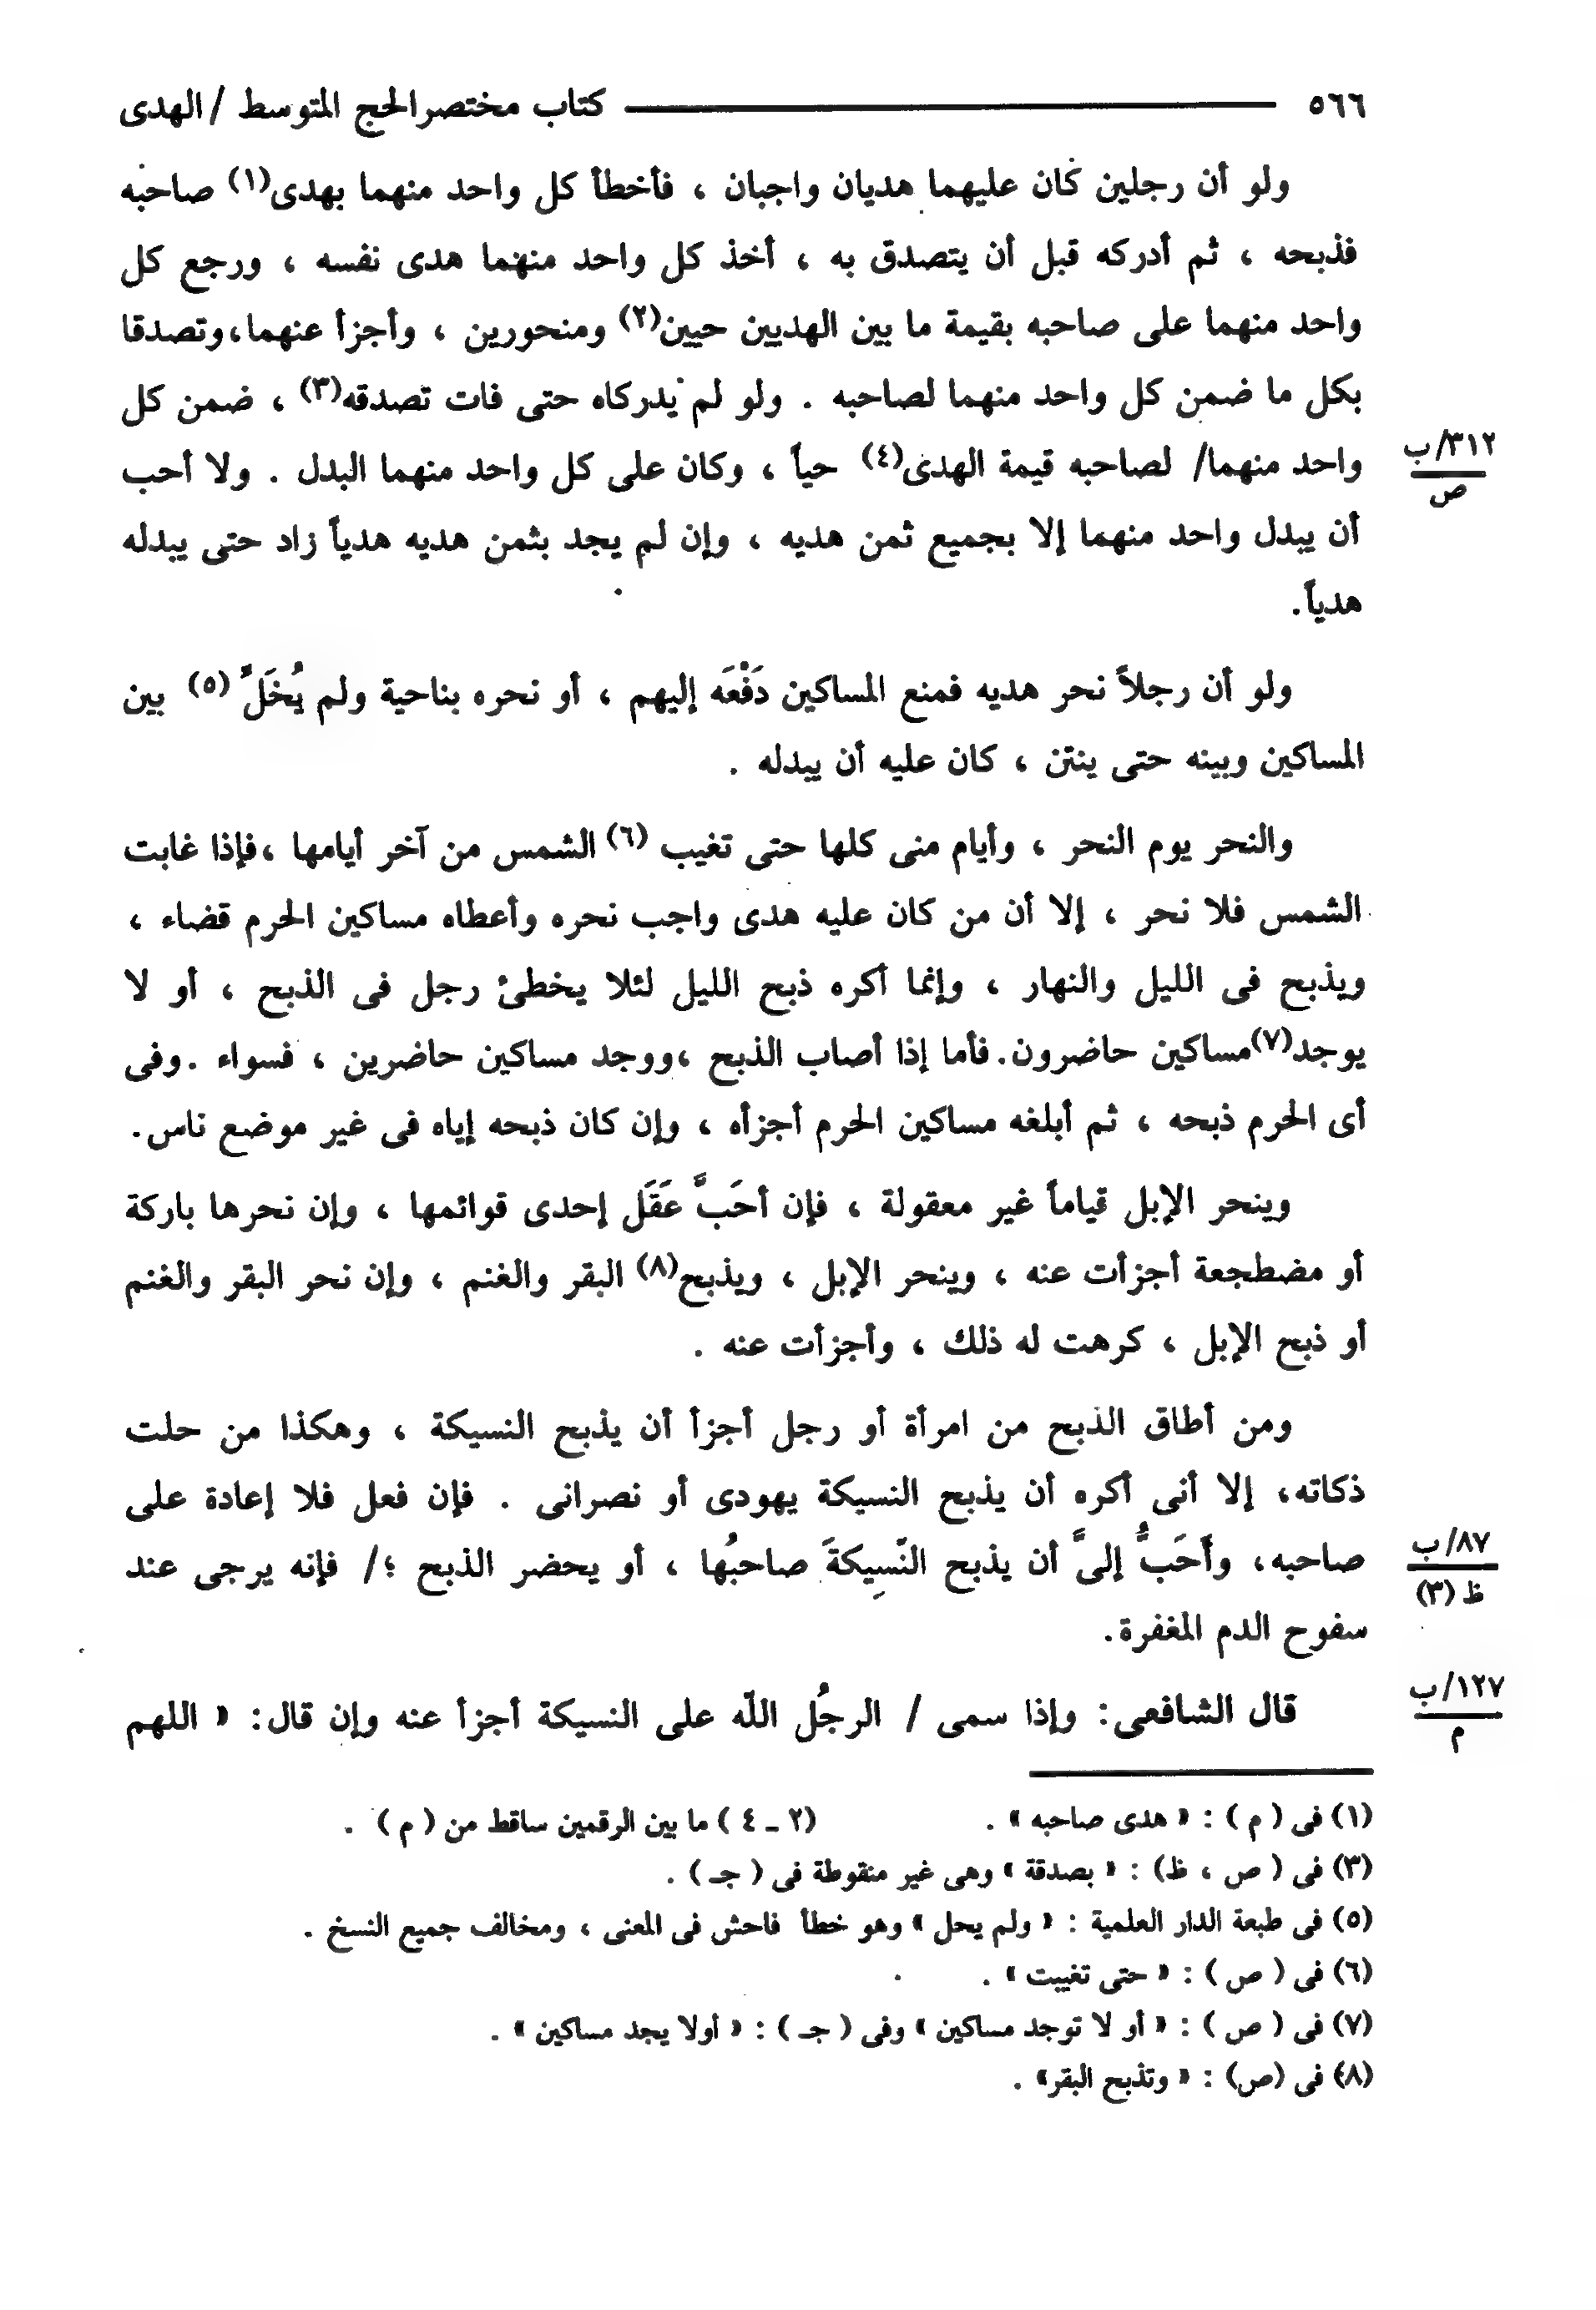 ٥٦٦ ــــــــــــ كتاب مختصر الحج المتوسط / الهدى
ولو أن رجلين كان عليهما هديان واجبان ، فأخطأ كل واحد منهما بهدى(١) صاحبه
فذبحه ، ثم أدركه قبل أن يتصدق به ، أخذ كل واحد منهما هدى نفسه ، ورجع كل
واحد منهما على صاحبه بقيمة ما بين الهديين حيين(٢) ومنحورين ، وأجزأ عنهما،وتصدقا
بكل ما ضمن كل واحد منهما لصاحبه . ولو لم يدركاه حتى فات تصدقه(٣) ، ضمن كل
واحد منهما/ لصاحبه قيمة الهدى(٤) حياً ، وكان على كل واحد منهما البدل . ولا أحب
٣١٢/ب
ص
أن يبدل واحد منهما إلا بجميع ثمن هديه ، وإن لم يجد بثمن هديه هدياً زاد حتى يبدله
هدياً.
ولو أن رجلاً نحر هديه فمنع المساكين دَفْعَه إليهم ، أو نحره بناحية ولم يُخَلِّ (٥) بين
المساكين وبينه حتى ينتن ، كان عليه أن يبدله .
والنحر يوم النحر ، وأيام منى كلها حتى تغيب (٦) الشمس من آخر أيامها ،فإذا غابت
الشمس فلا نحر ، إلا أن من كان عليه هدى واجب نحره وأعطاه مساكين الحرم قضاء ،
ويذبح فى الليل والنهار ، وإنما أكره ذبح الليل لئلا يخطئ رجل فى الذبح ، أو لا
يوجد(٧)مساكين حاضرون. فأما إذا أصاب الذبح ،ووجد مساكين حاضرين ، فسواء .وفى
أى الحرم ذبحه ، ثم أبلغه مساكين الحرم أجزأه ، وإن كان ذبحه إياه فى غير موضع ناس.
وينحر الإبل قياماً غير معقولة ، فإن أحَبَّ عَقَل إحدى قوائمها ، وإن نحرها باركة
أو مضطجعة أجزأت عنه ، وينحر الإبل ، ويذبح(٨) البقر والغنم ، وإن نحر البقر والغنم
أو ذبح الإبل ، كرهت له ذلك ، وأجزأت عنه .
ومن أطاق الذبح من امرأة أو رجل أجزأ أن يذبح النسيكة ، وهكذا من حلت
ذكاته، إلا أنى أكره أن يذبح النسيكة يهودى أو نصرانى . فإن فعل فلا إعادة على
صاحبه، وأَحَبُّ إلىَّ أن يذبح النَّسِيكةَ صاحبُها ، أو يحضر الذبح ؛/ فإنه يرجى عند
٨٧/ب
ظ (٣)
سفوح الدم المغفرة.
قال الشافعى: وإذا سمى / الرجُل اللّه على النسيكة أجزأ عنه وإن قال: « اللهم
١٢٧/ب
م
(١) فى ( م ) : « هدى صاحبه » . (٢ ـ ٤ ) ما بين الرقمين ساقط من ( م ) .
(٣) فى ( ص ، ظ) : « بصدقة » وهى غير منقوطة فى ( جـ ) .
(٥) فى طبعة الدار العلمية : « ولم يحل » وهو خطأ فاحش فى المعنى ، ومخالف جميع النسخ .
(٦) فى ( ص ) : « حتى تغييت » .
(٧) فى ( ص ) : « أو لا توجد مساكين » وفى ( جـ ) : « أولا يجد مساكين » .
(٨) فى (ص) : « وتذبح البقر» .